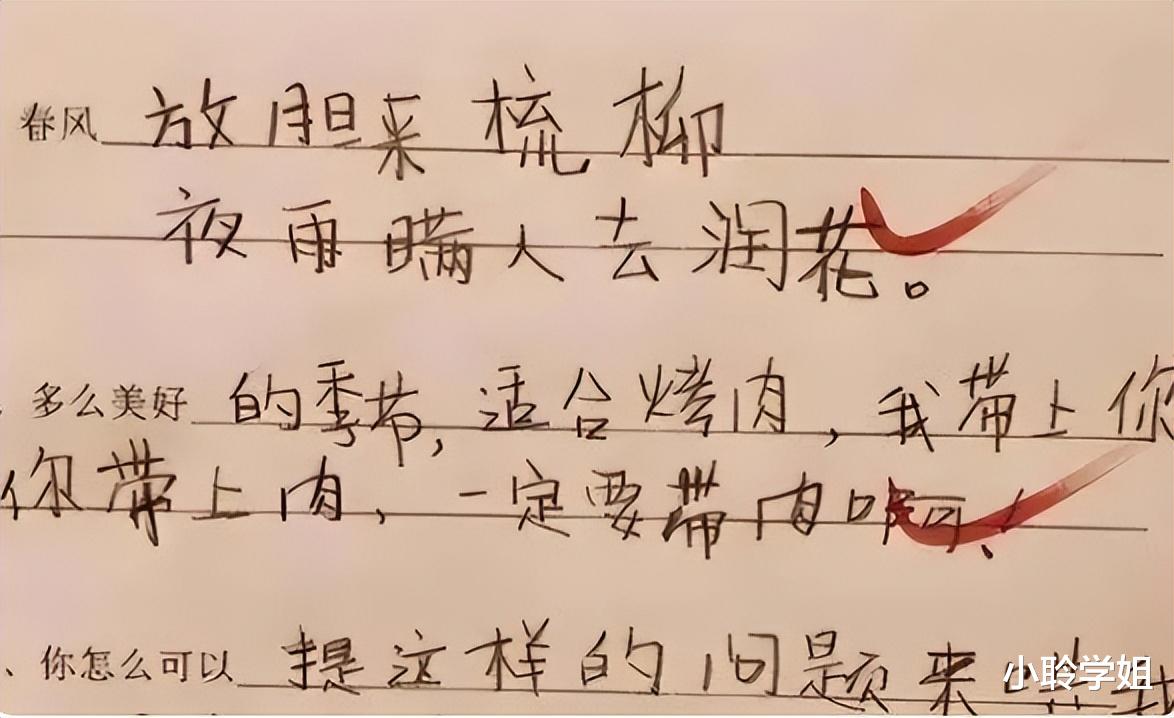 春风放胆来梳柳
夜雨瞒人去润花。
多么美好的季节,适合烤肉,我带上你
你带上肉,一定要带肉啊!
、你怎么可以提这样的问题来
小聆学姐